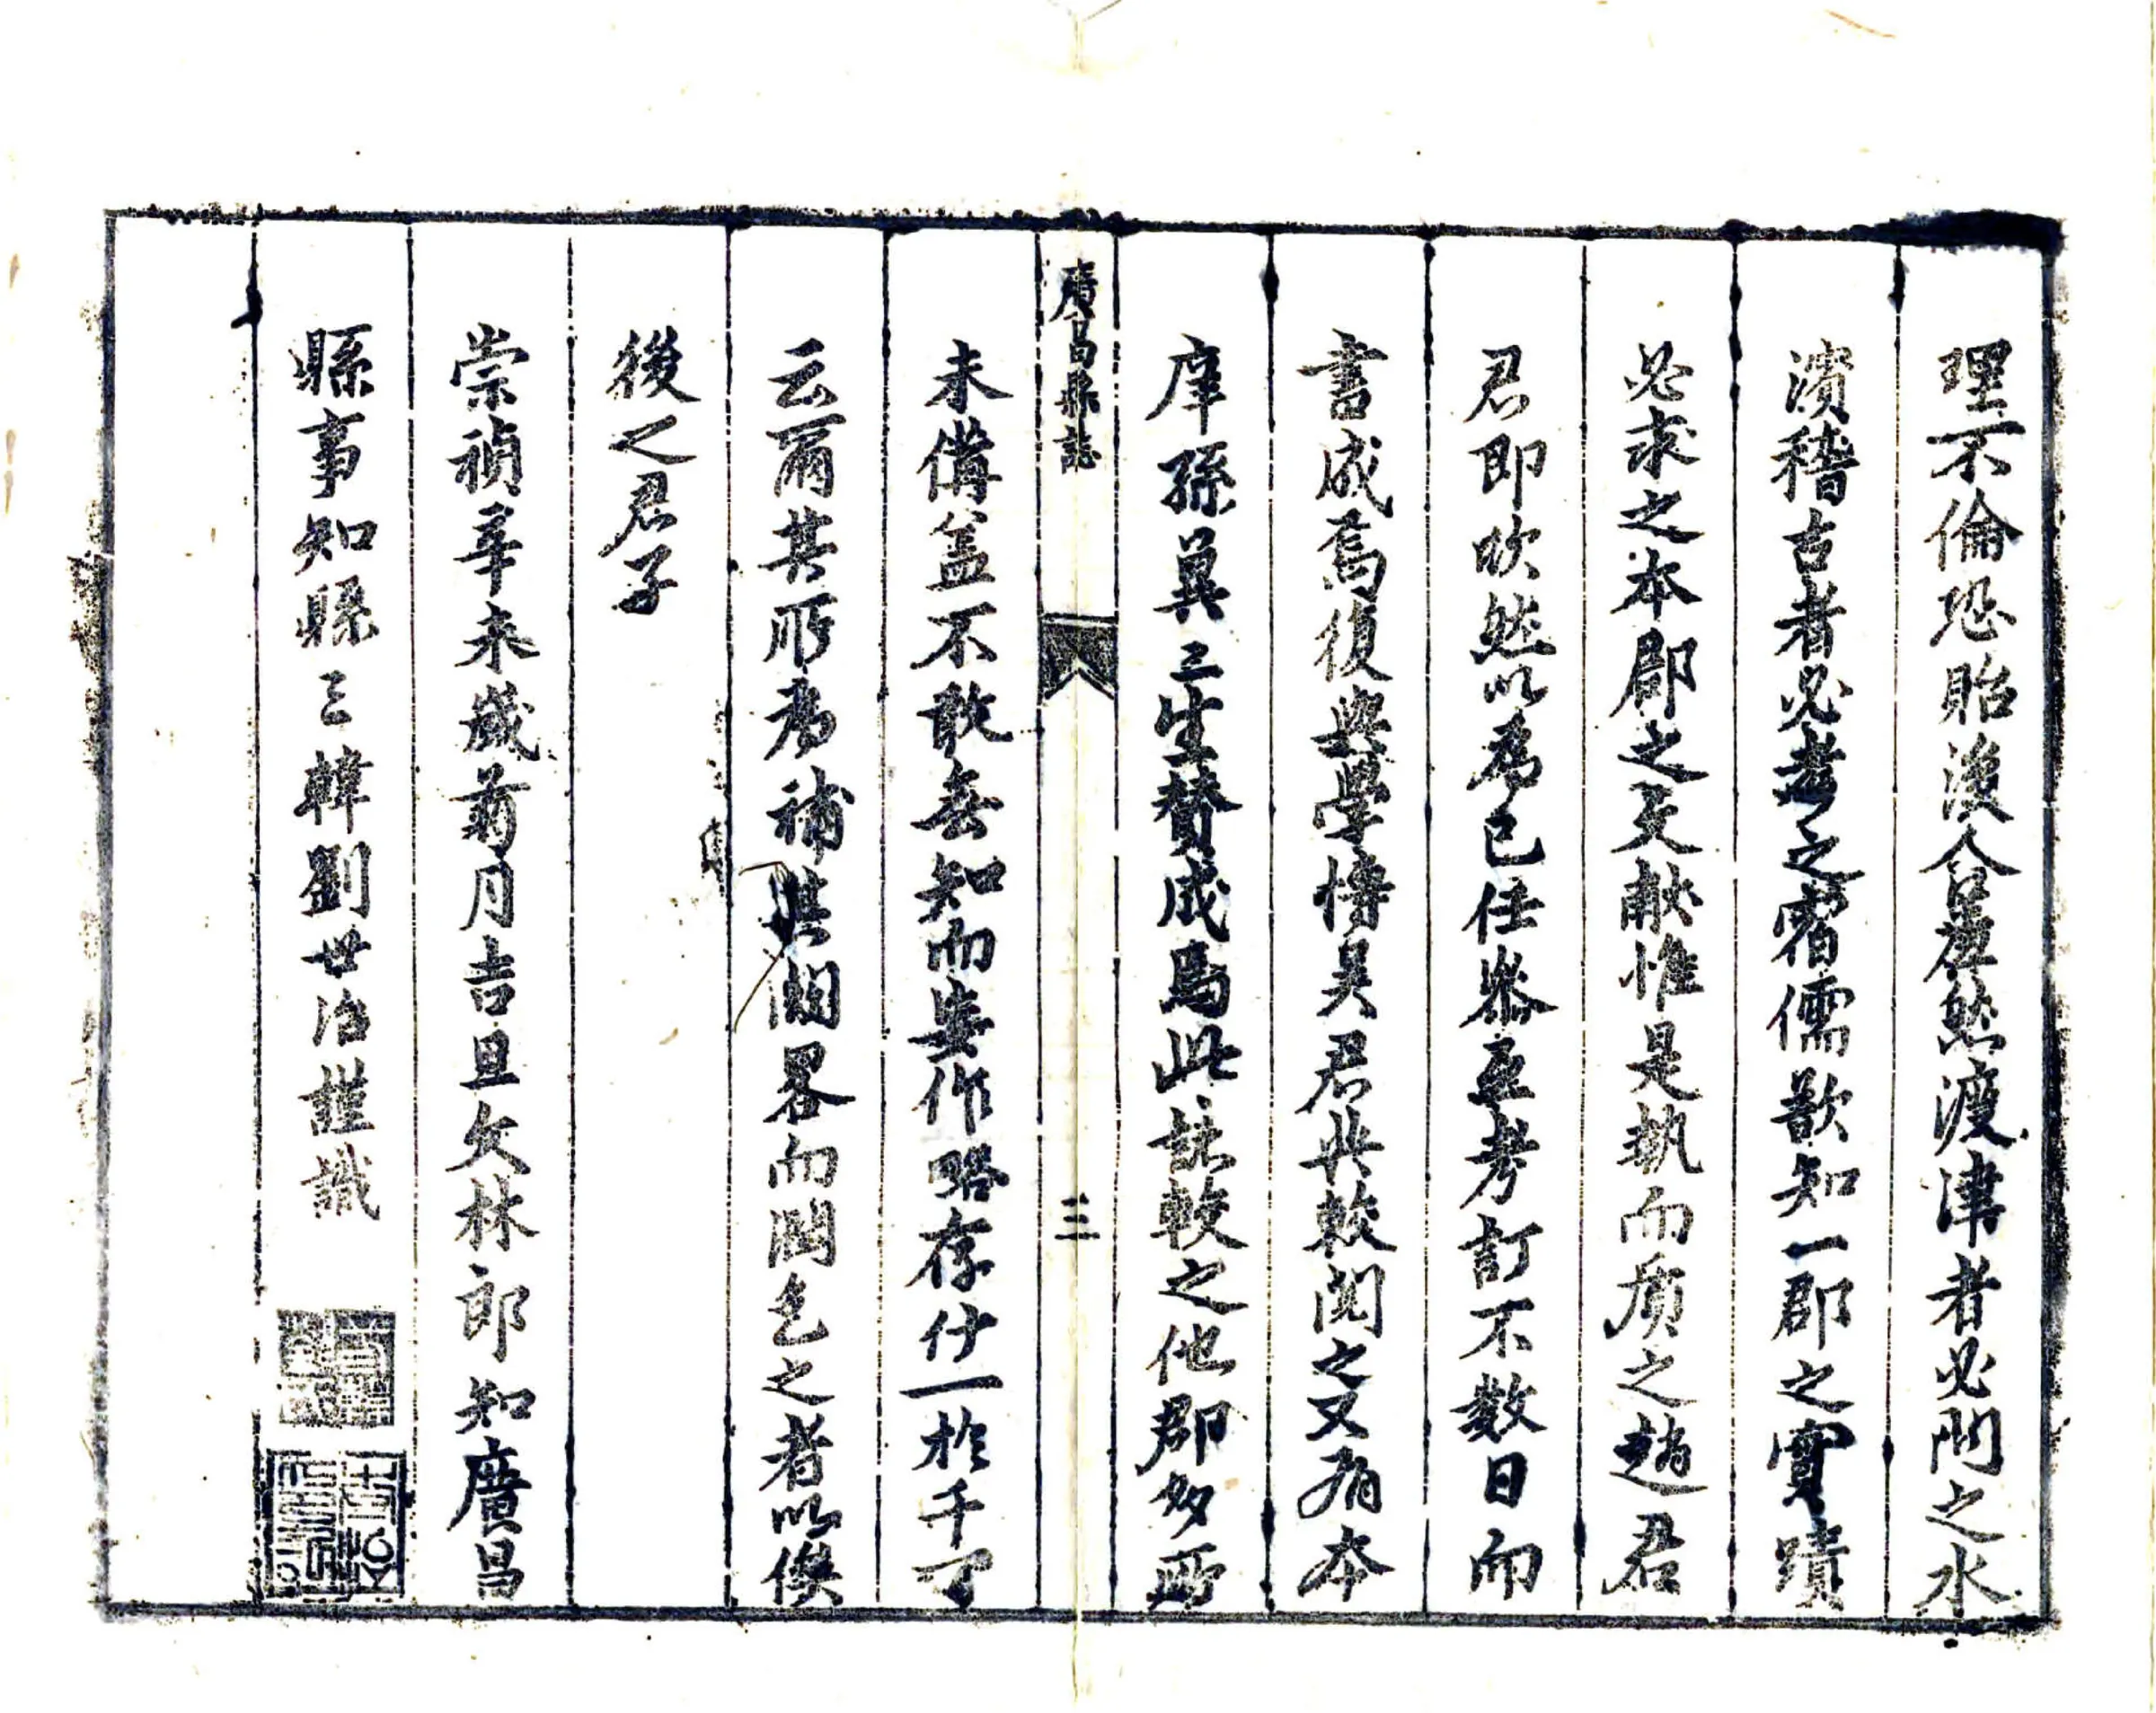 理不倫恐貽後人羞然渡津者必問之水
濱稽古者必考之宿儒欲知一郡之實蹟
必求之本郡之文献惟是執而質之趙君
君即欣然以為己任參互考訂不数日而
書成焉復與學博吴君共較閲之又有本
庠孫莫三生賛成焉此誌較之他郡多所
廣昌縣誌
三
未備盖不敢無知而妄作略存什一於千百
云爾其所為補其闕畧而潤色之者以俟
後之君子
崇禎辛未歲菊月吉旦文林郎知廣昌
縣事知縣三韓劉世治謹識